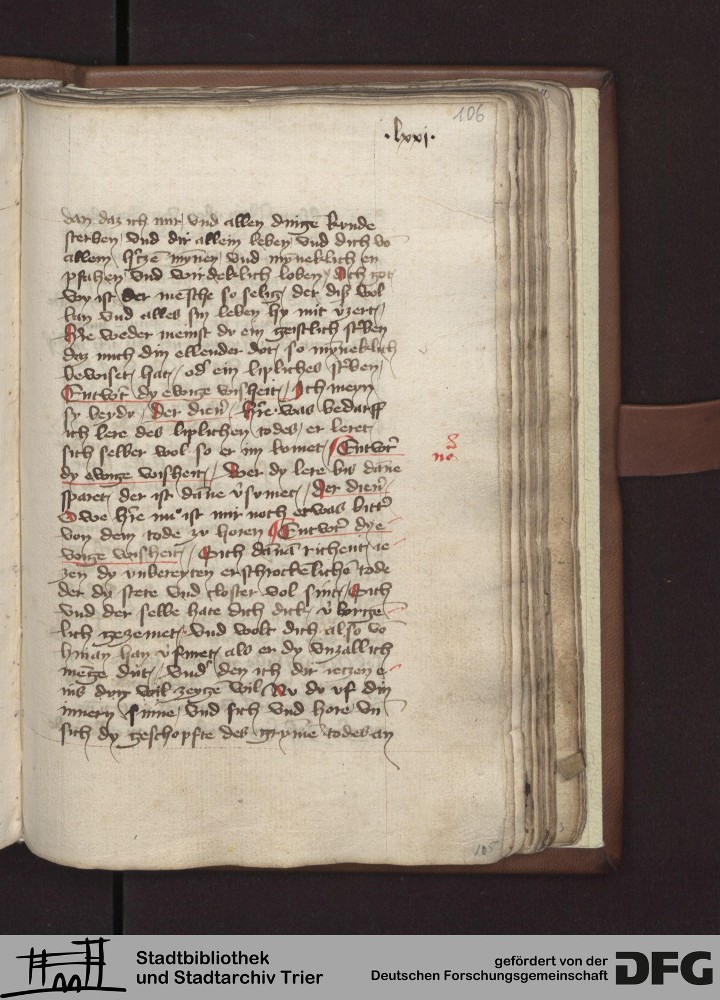 106
·lxxi·
dan daz ich mir vnd allen dingē kunde
sterben vnd dir allein leben vnd dich vō
allem h'tzē mynen vnd mynneklich en
pfahen vnd wirdeklich loben Ach got
wy ist der mēsche so selig der diß wol
kan vnd alles sin leben hy mit v'zert
H're weder meinst du ein geistlich st'ben
daz mich din ellender dot so mynneklich
bewiset hat od' ein lipliches st'ben
Entwort dy ewige wisheit Ich meyn
sy beydv Der dien' H're was bedarff
ich lere des liplichen todes er leret
sich selber wol so er im kumet Entwort
dy ewige wisheit Wer dy lere bis dāne
sparet der ist dāne v'sumet Der dien'
Owe h're nu ist mir noch etwas bitt'
von dem tode zu horen Entwort dy e
wige wisheit Sich dānā richent ie
zen dy vnbereyten erschrockēlichē tode
der dy stete vnd closter vol sint Sich
vnd der selbe hate dich dick v'borge
lich gezemet vnd wolt dich also vō
hinan han v'furet als er dy vnzallich
mēge dut vnd den ich dir ieczen e
ins dring wil zeyge wil Nu du vf din
innern sinne vnd sich vnd hore vn
sich dy geschopfte des grymē todes an
no
105
Stadtbibliothek
und Stadtarchiv Trier
gefördert von der
Deutschen Forschungsgemeinschaft
DFG